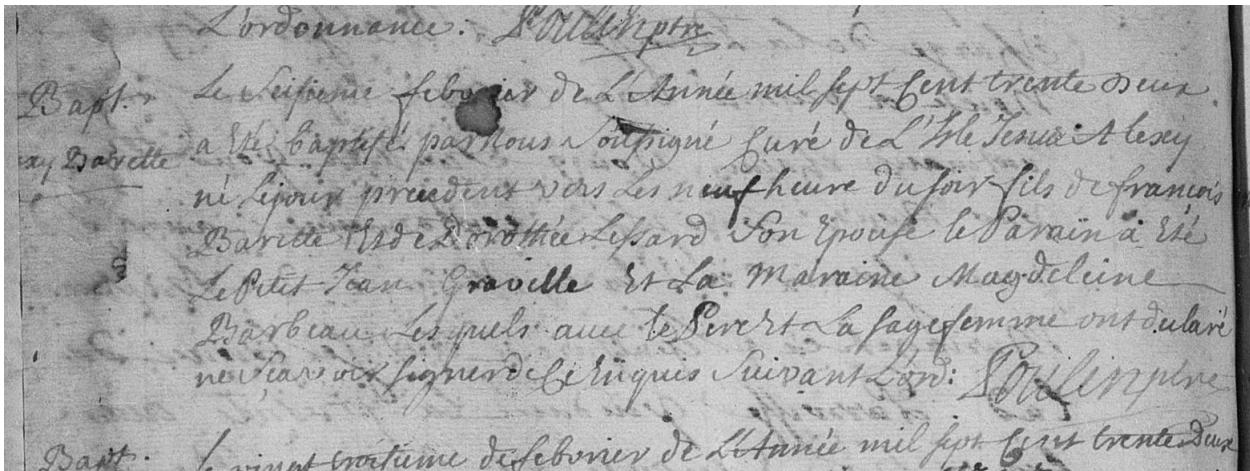 L'ordonnance. Poulin ptre
Bapt.
Le Seisieme febvrier de L'Année mil sept Cent trente deux
a Eté baptisé par Nous Soussigné Curé de L'Isle Jesus Alexy
xy Barette
né le jour precedent vers les neuf heure du soir fils de françois
Barette Et de Dorothée Lessard Son Epouse le Parain a Eté
Le Petit Jean Graville Et La Maraine Magdeleine
Barbeau Lesquels avec le Pere Et La sage femme ont declaré
ne sçavoir signer de ce Enquis Suivant L'ord: Poulin ptre
Bapt.
Le vingt troisieme de febvrier de L'Année mil sept Cent trente Deux